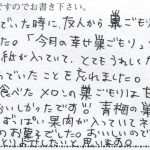 ですのでお書き下さい。
でいった時に、友人から巣ごもり
した。「今月の幸せ巣ごもり」
紙が入っていて、とてもうれしく
でいたことを忘れました。
食べたメロンの巣ごもりは甘
おいしかったです。青梅の巣
ずっぱい果肉が入っていて
のお菓子でした。おいしいので
思います。